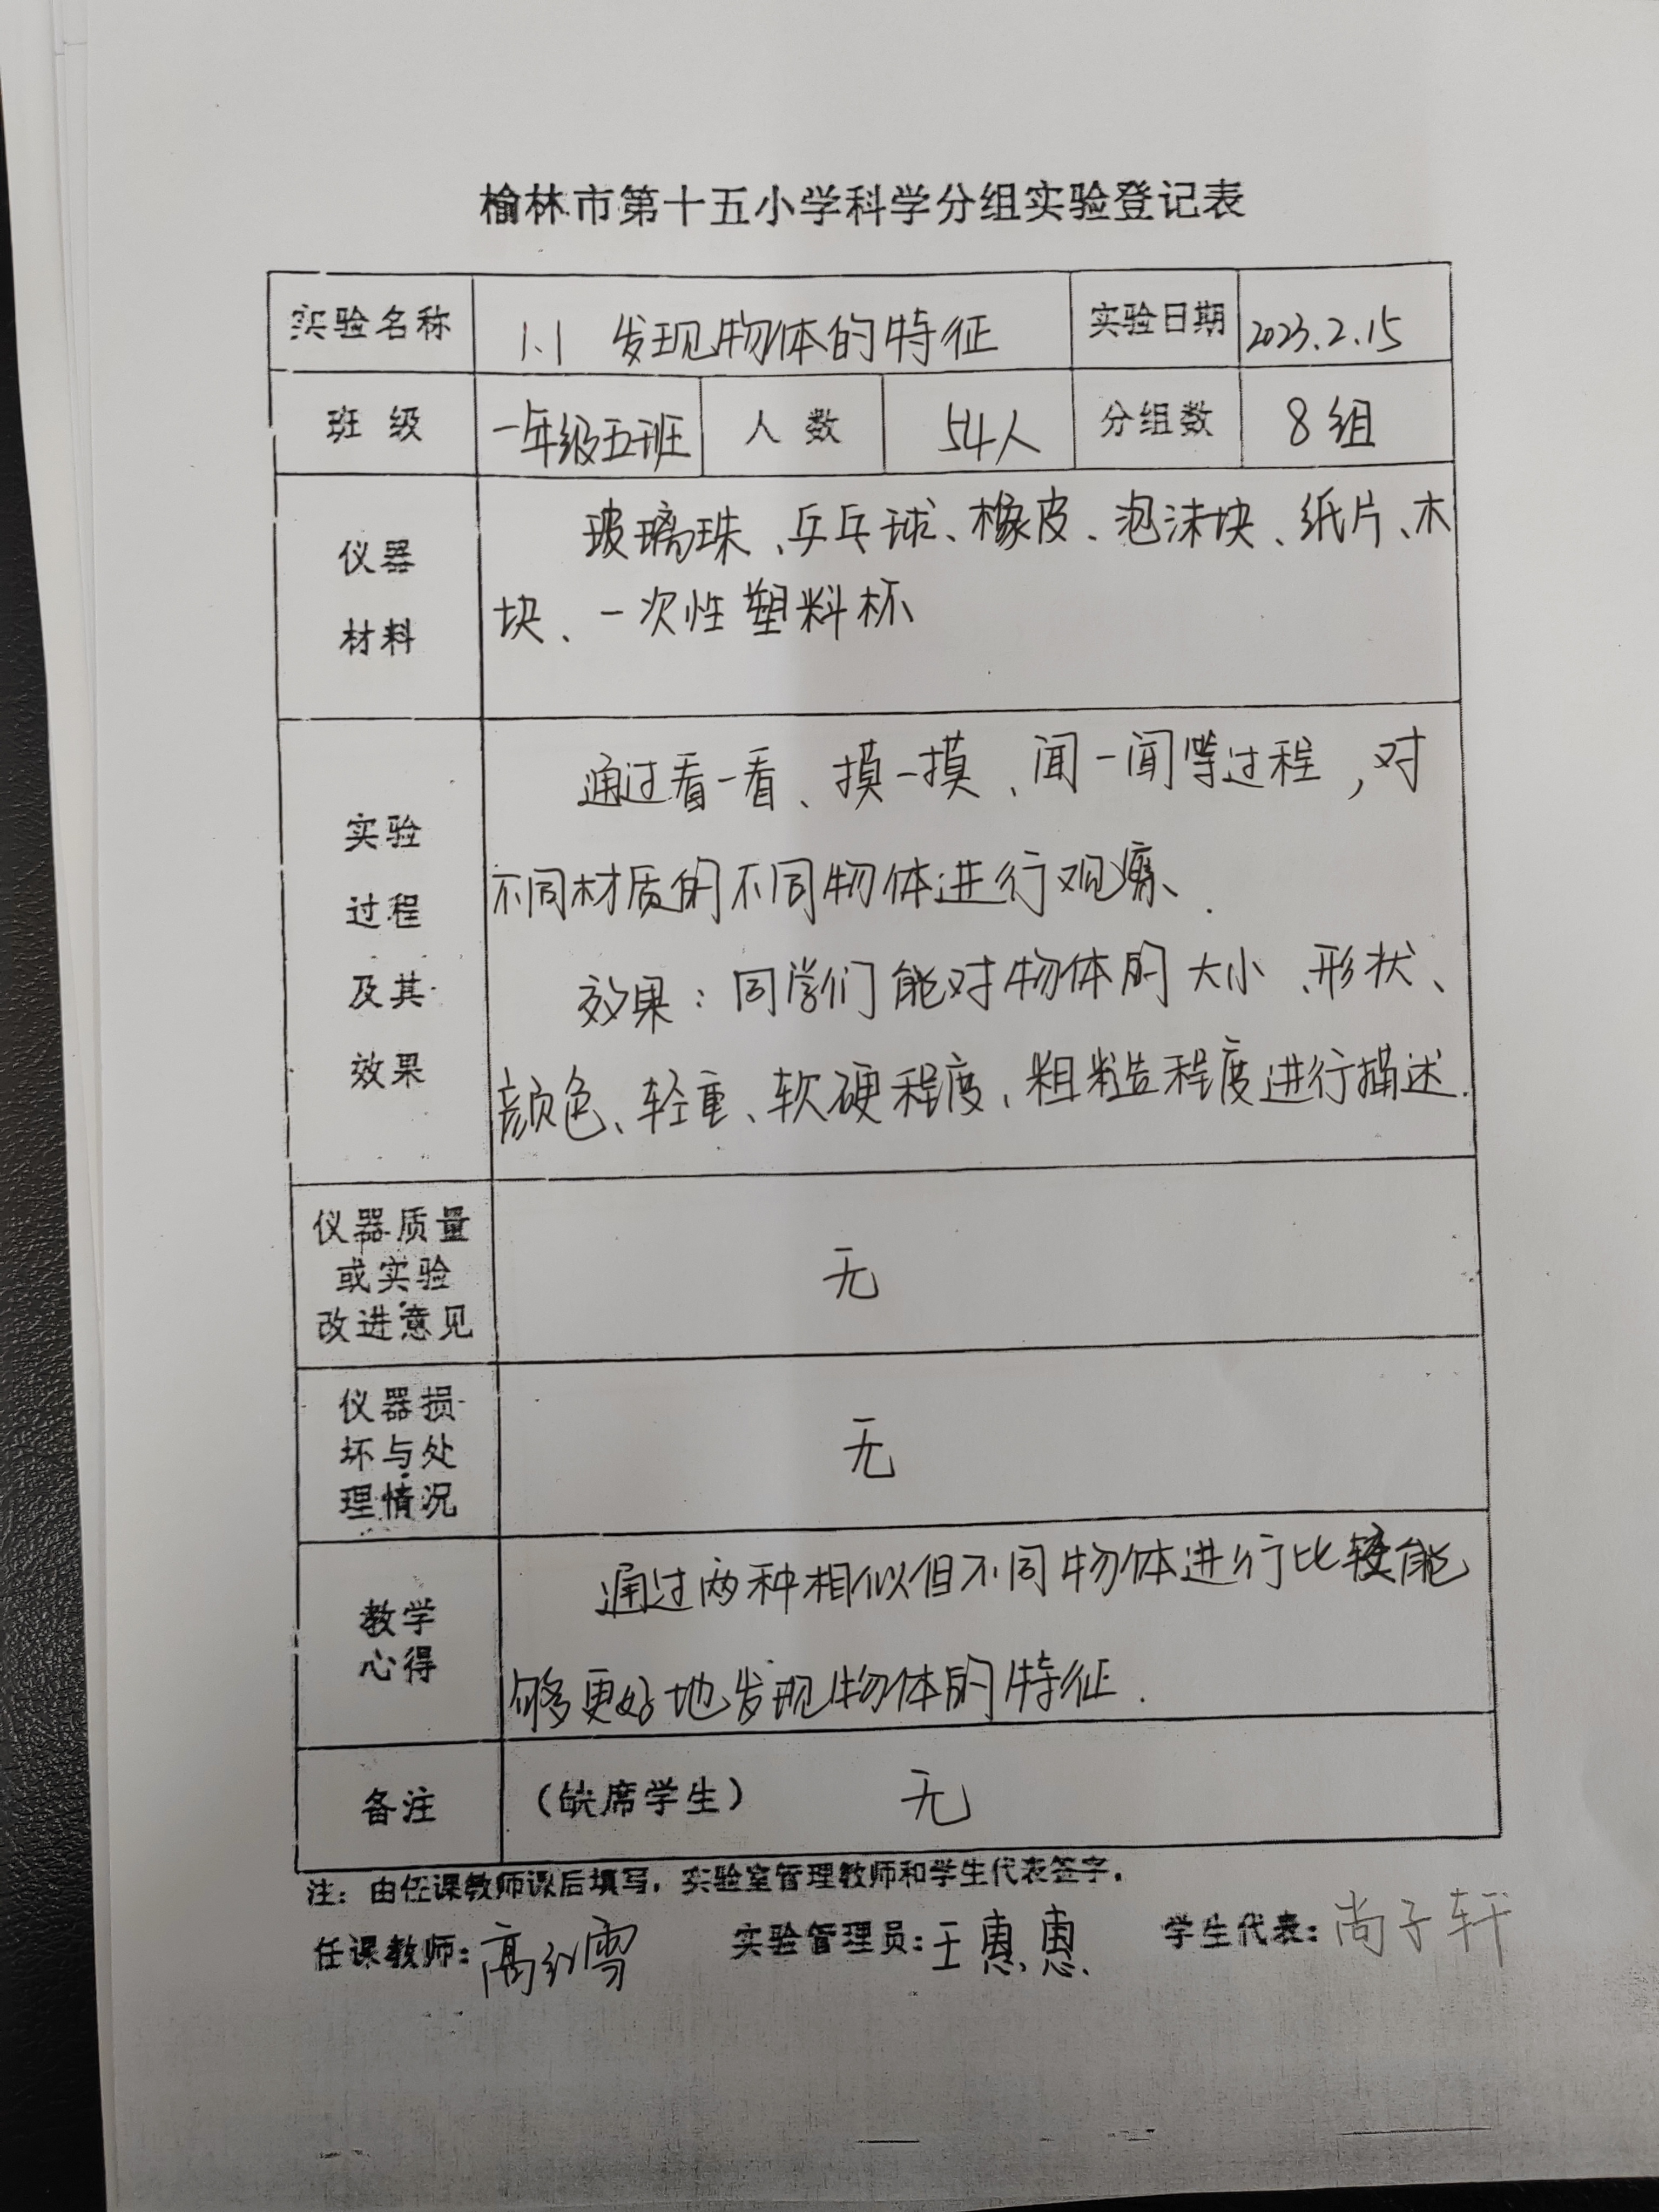 榆林市第十五小学科学分组实验登记表
实验名称 1.1 发现物体的特征 实验日期 2023.2.15
班级 一年级五班 人数 54人 分组数 8组
仪器
材料
玻璃珠、乒乓球、橡皮、泡沫块、纸片、木
块、一次性塑料杯
实验
过程
及其
效果
通过看一看、摸一摸、闻一闻等过程，对
不同材质的不同物体进行观察、
效果：同学们能对物体的大小、形状、
颜色、轻重、软硬程度、粗糙程度进行描述.
仪器质量
或实验
改进意见
无
仪器损
坏与处
理情况
无
教学
心得
通过两种相似但不同物体进行比较能
够更好地发现物体的特征.
备注 （缺席学生） 无
注：由任课教师课后填写，实验室管理教师和学生代表签字。
任课教师：高红雪 实验管理员：王惠惠 学生代表：尚子轩